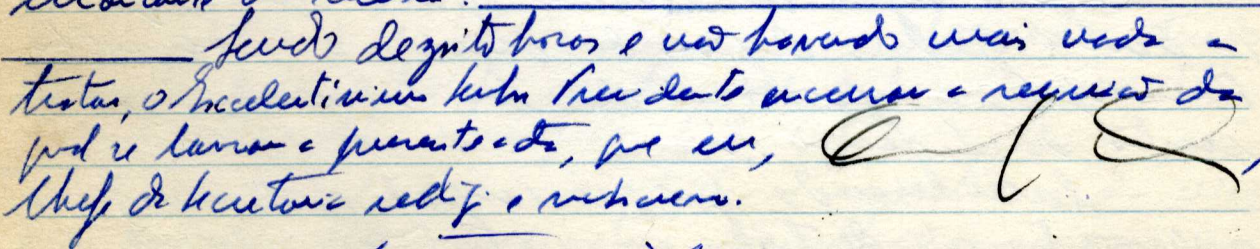 Sendo dezoito horas e não havendo mais nada a
tratar, o Excelentíssimo Senhor Presidente encerrou a reunião da
qual se lavrou a presente acta, que eu,
Chefe da Secretaria redigi e subscrevo.